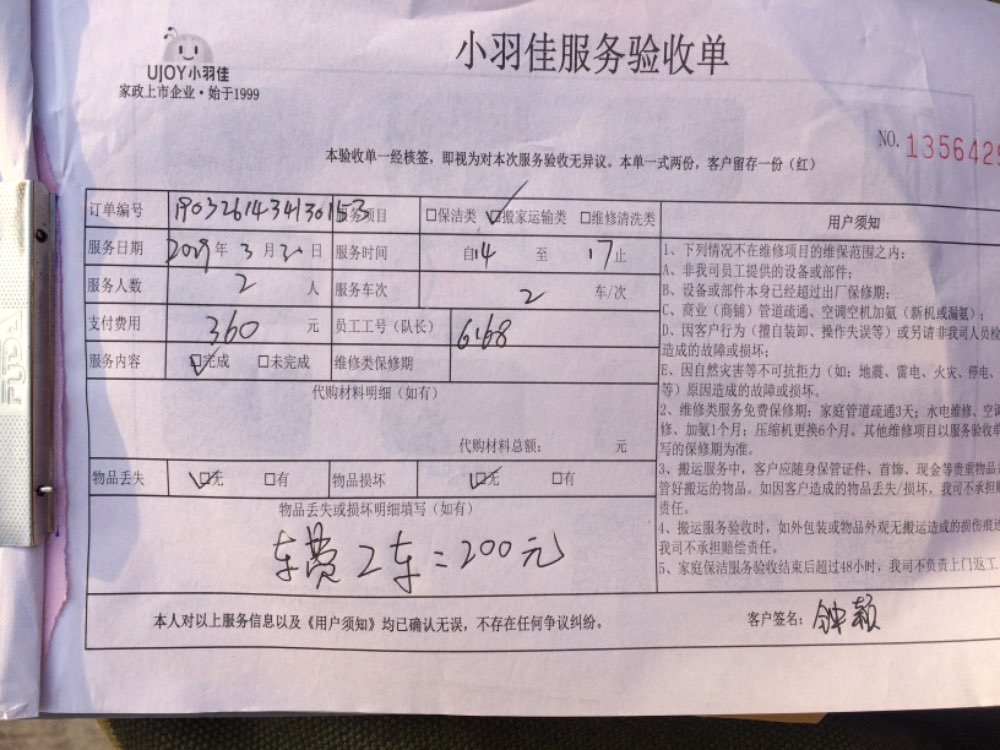 UJOY小羽佳
家政上市企业·始于1999
小羽佳服务验收单
NO. 1356429
本验收单一经核签，即视为对本次服务验收无异议。本单一式两份，客户留存一份（红）
订单编号 190326143413015 服务项目 □保洁类 □搬家运输类 □维修清洗类
服务日期 2019年3月 日 服务时间 自14 至 17止
服务人数 2 人 服务车次 2 车/次
支付费用 360 元 员工工号（队长） 6168
服务内容 □完成 □未完成 维修类保修期
代购材料明细（如有）
代购材料总额： 元
物品丢失 □无 □有 物品损坏 □无 □有
物品丢失或损坏明细填写（如有）
车费2车=200元
用户须知
1、下列情况不在维修项目的维保范围之内：
A、非我司员工提供的设备或部件；
B、设备或部件本身已经超过出厂保修期；
C、商业（商铺）管道疏通、空调空机加氨（新机或漏氨）；
D、因客户行为（擅自装卸、操作失误等）或另请非我司人员检
造成的故障或损坏；
E、因自然灾害等不可抗拒力（如：地震、雷电、火灾、停电、
等）原因造成的故障或损坏。
2、维修类服务免费保修期：家庭管道疏通3天；水电维修、空调
修、加氨1个月；压缩机更换6个月。其他维修项目以服务验收单
写的保修期为准。
3、搬运服务中，客户应随身保管证件、首饰、现金等贵重物品
管好搬运的物品。如因客户造成的物品丢失/损坏，我司不承担
责任。
4、搬运服务验收时，如外包装或物品外观无搬运造成的损伤痕迹
我司不承担赔偿责任。
5、家庭保洁服务验收结束后超过48小时，我司不负责上门返工
本人对以上服务信息以及《用户须知》均已确认无误，不存在任何争议纠纷。 客户签名：钟颖